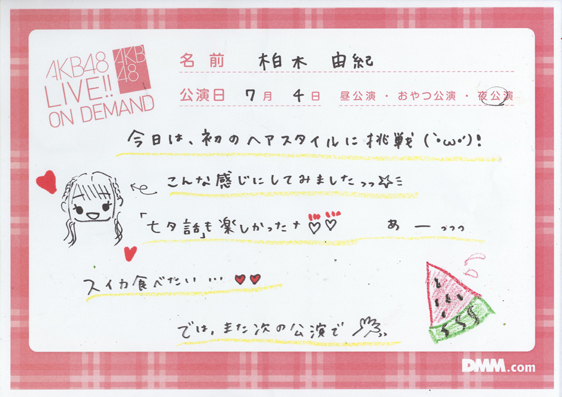 AKB48
LIVE!!
ON DEMAND
AKB
48
名前 柏木 由紀
公演日 7月 4日 昼公演・おやつ公演・夜公演
今日は、初のヘアスタイルに挑戦(`・ω・´)!
こんな感じにしてみましたっっ☆ミ
「七夕話」も楽しかったナ♡♡ あーっっっ
スイカ食べたい…♥♥
では、また次の公演で
DMM.com